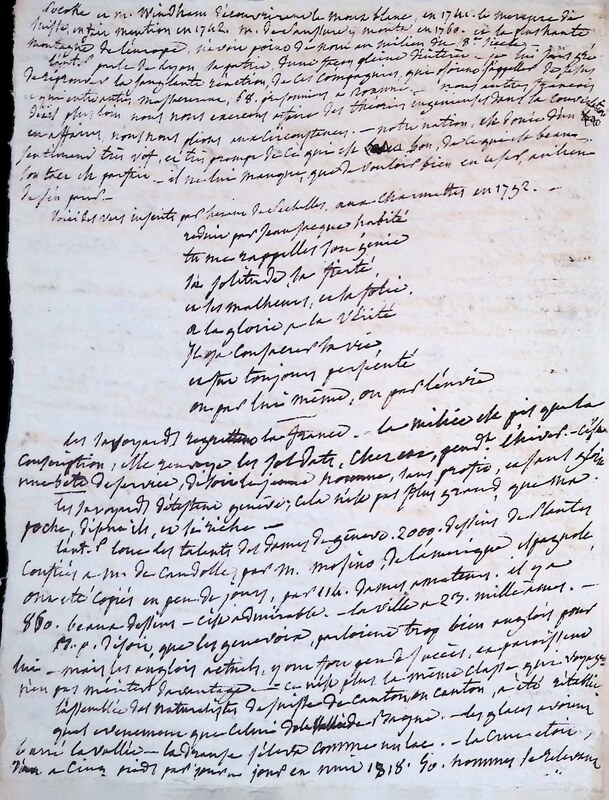 Pocoke et m. Windham découvrirent le mont blanc, en 1741. le marquis de
en fit mention en 1742. m. de Saussure y monta en 1760. et la plus haute
montagne de l'europe, ne voir point de nom au milieu du 8e siècle. —
l'aut. parle de Lyon sa patrie, d'une façon pleine d'intérêt —
la sanglante réaction, de ces Compagnies, que osoient s'appeller de Jésus
et qui entre autres massacrerent, 68. prisonniers a roanne. — nous autres françois
plus loin, nous nous exercons des théories dans la conversation
en affaires, nous nous plions aux circonstances. — notre nation, est douée d'un
sentiment très vif, et très prompt de ce qui est bon, de ce que est beau.
son tact est parfait — il ne lui manque, que de vouloir bien
voici les vers inscrits par herault de Sechelles, aux Charmettes en 1792. —
réduit par Jean Jacque habité
tu me rappelles son génie
sa solitude, sa fierté
et ses malheurs, et sa folie.
a la gloire, a la vérité
Il osa consacrer sa vie
et fut toujours persécuté
ou par lui même, ou par l'envie
les savoyards regrettent la france. — la milice est pis que la
conscription, elle renvoye les soldats, chez eux, pendt. l'hiver — c'est
de service, de soin le jeune homme, sans profit, et sans gloire
les savoyards détestent genève; cela n'est pas plus grand, que ma
poche, disent ils, et si riche —
l'aut. loue les talents des dames de genève. 2000. dessins de plantes
confiés a m. de Candolle, par m. mosino, de l'amérique espagnole
ont été copiés en peu de jours, par 114. dames amateurs, il y a
860. beaux dessins — c'est admirable. — la ville a 23. mille ames. —
M. p. disoit, que les genevois, parloient trop bien anglois pour
lui — mais les anglois actuels, y ont fort peu de succès, et paroissent
n'en pas mériter davantage — ce n'est plus la même classe que voyage
l'assemblée des naturalistes de suisse de canton, en canton, a été rétablie
quel evenement que celui de la vallée de Bagne. — les glaces avoient
barré la vallée — la dranse s'éleva comme un lac. — la crue etoit,
a cinq pieds par jour en mai 1818. 50. hommes se relevant